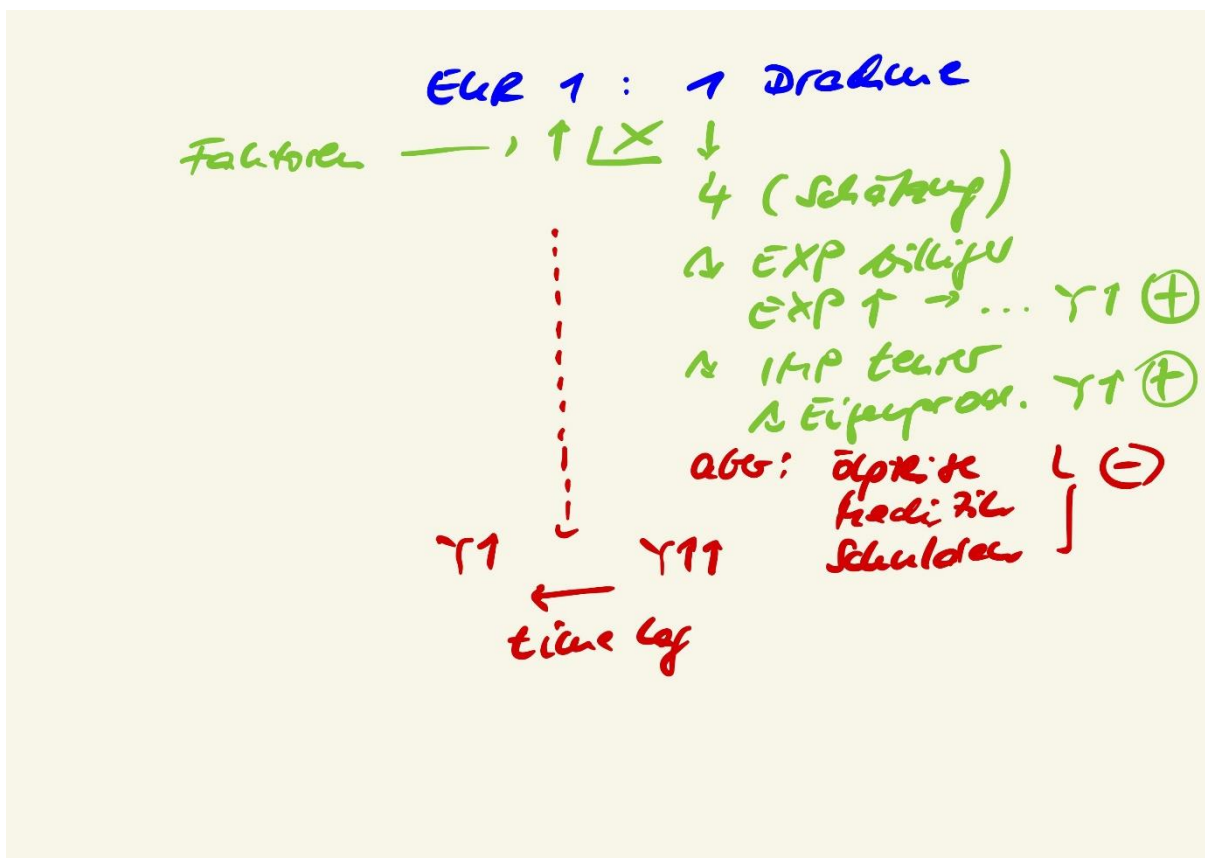 EUR 1 : 1 Drachme
Faktoren → ↑ X ↓
4 (Schätzung)
EXP billiger
EXP ↑ → ... Y↑ ⊕
IMP teurer
Eigenprod. Y↑ ⊕
aber: Ölpreise ⊖
Medizin
Schulden
Y↑ Y↑↑
←
time lag